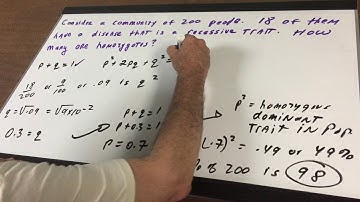 Consider a community of 200 people. 18 of them
have a disease that is a recessive TRAIT. How
many are homozygotes?
p + q = 1 p² + 2pq + q² =
18/200 or 9/100 or .09 is q²
q = √.09 = √9x10-2
0.3 = q
p + q = 1
p + 0.3 = 1
p = 0.7
p² = homozygous
dominant
TRAIT in Pop.
(.7)² = .49 or 49%
of 200 is 98